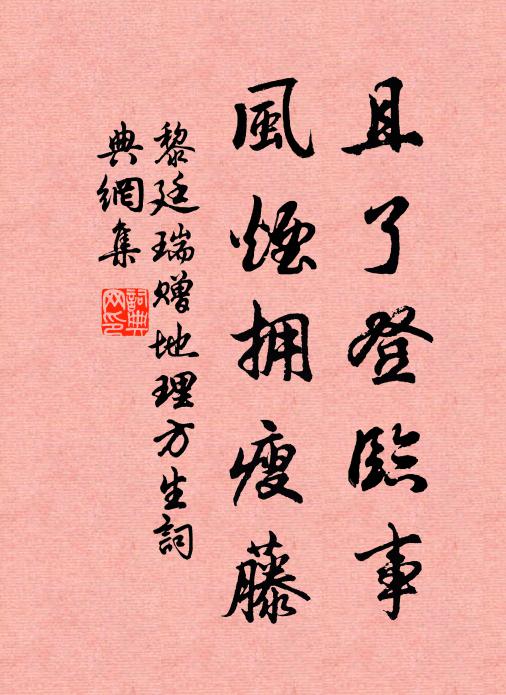 且了登臨事
風煙拥瘦藤
黎廷瑞赠地理方生詞
典網集
詞典
网印